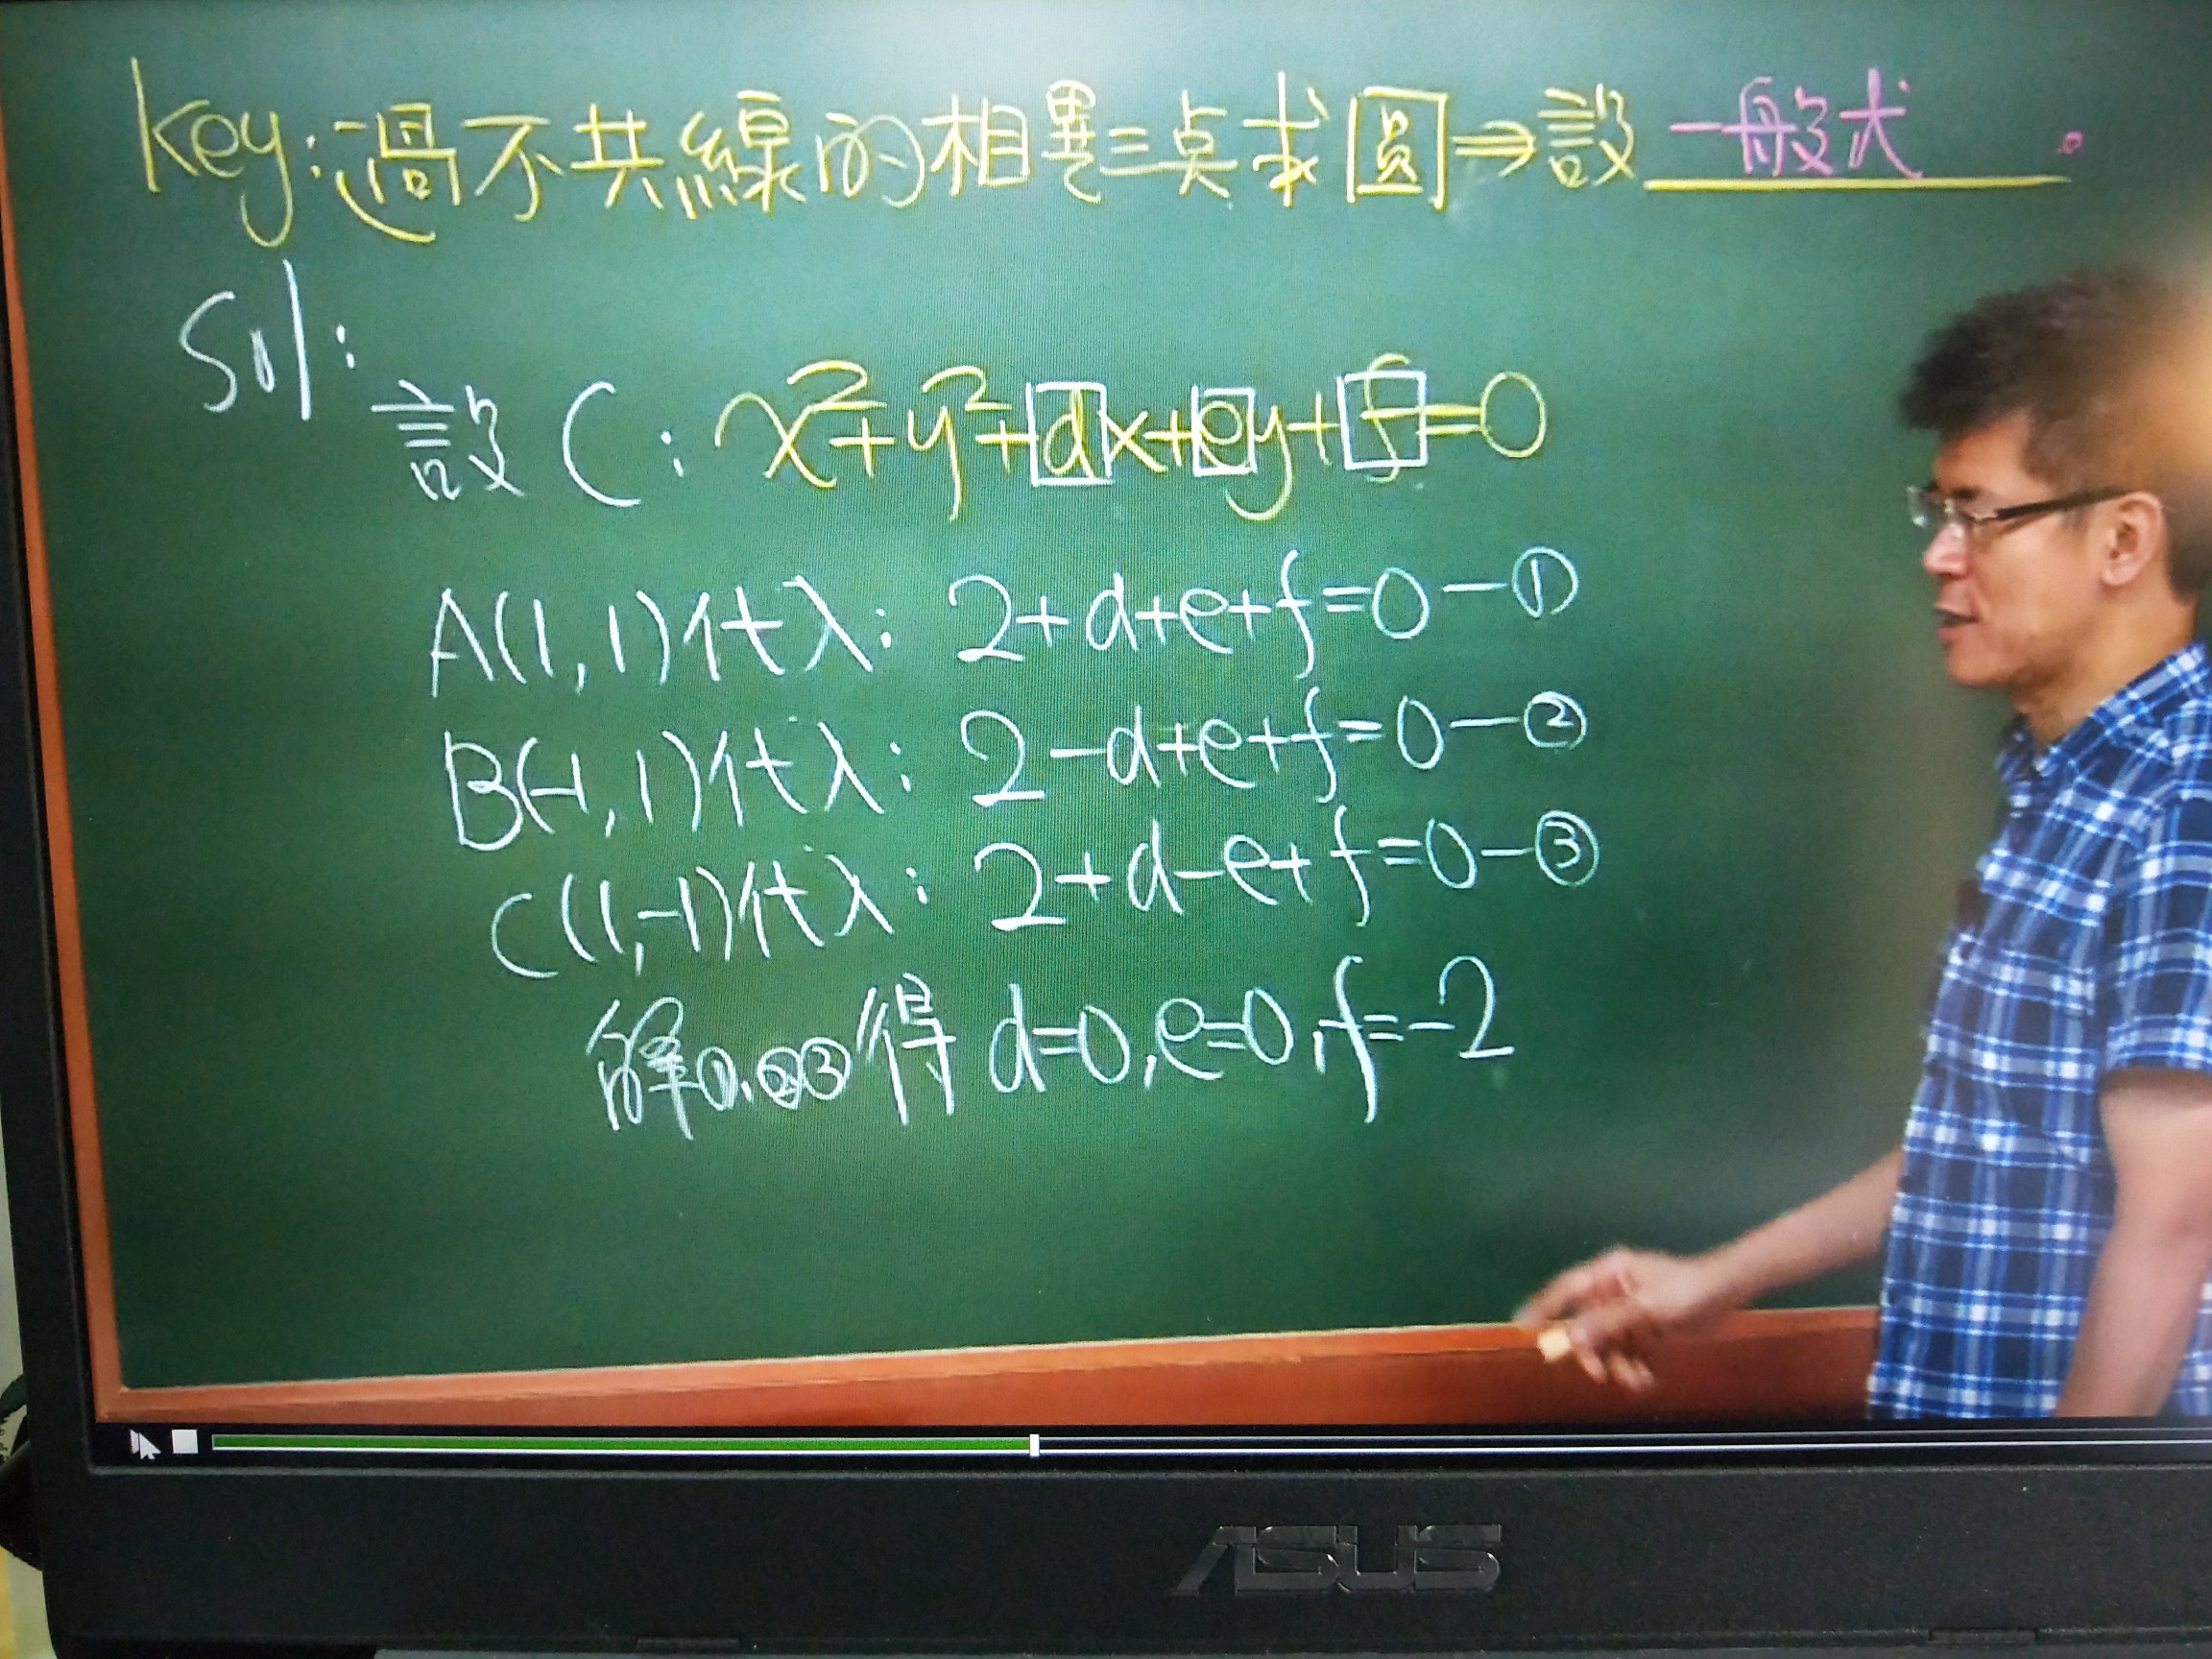 key:過不共線的相異三点求圓⇒設一般式。
Sol:
設 C: x²+y²+dx+ey+f=0
A(1,1)代入: 2+d+e+f=0—①
B(-1,1)代入: 2-d+e+f=0—②
C(1,-1)代入: 2+d-e+f=0—③
解①,②,③得 d=0,e=0,f=-2
ASUS